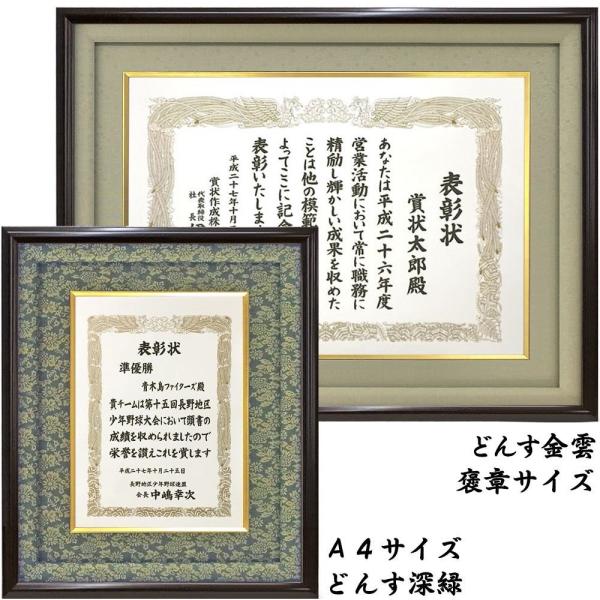 表彰状
賞状太郎殿
あなたは平成二十六年度
営業活動において常に職務に
精励し輝かしい成果を収めた
ことは他の模範
よってここに記念
表彰いたしま
平成二十七年十月二
賞状作成株
代表取締役
社長
表彰状
準優勝
青木島ファイターズ殿
貴チームは第十五回長野地区
少年野球大会において頭書の
成績を収められましたので
栄誉を讃えこれを賞します
平成二十七年十月二十五日
長野地区少年野球連盟
会長 中嶋幸次
どんす金雲
褒章サイズ
A4サイズ
どんす深緑